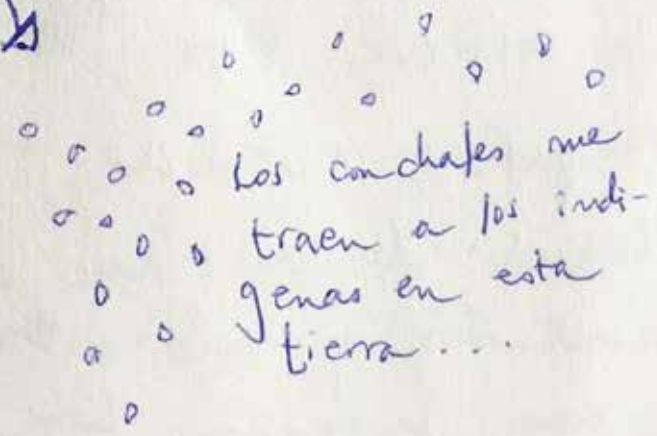 Los conchales me
traen a los indí-
genas en esta
tierra...